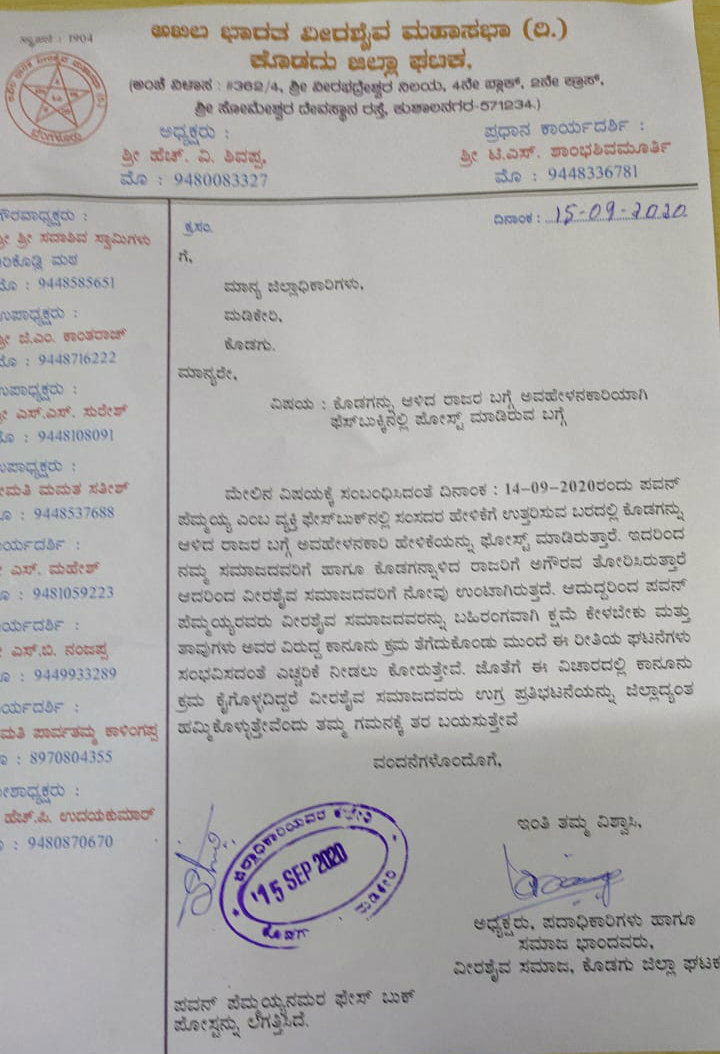 ಸ್ಥಾಪನೆ : 1904
ಅಖಿಲ ಭಾರತ ವೀರಶೈವ ಮಹಾಸಭಾ (ರಿ.)
ಕೊಡಗು ಜಿಲ್ಲಾ ಘಟಕ.
(ಅಂಚೆ ವಿಳಾಸ : #362/4, ಶ್ರೀ ವೀರಭದ್ರೇಶ್ವರ ನಿಲಯ, 4ನೇ ಬ್ಲಾಕ್, 2ನೇ ಕ್ರಾಸ್,
ಶ್ರೀ ಸೋಮೇಶ್ವರ ದೇವಸ್ಥಾನ ರಸ್ತೆ, ಕುಶಾಲನಗರ-571234.)
ಬೆಂಗಳೂರು
ಅಧ್ಯಕ್ಷರು :
ಶ್ರೀ ಹೆಚ್. ವಿ. ಶಿವಪ್ಪ,
ಮೊ : 9480083327
ಪ್ರಧಾನ ಕಾರ್ಯದರ್ಶಿ :
ಶ್ರೀ ಟಿ.ಎಸ್. ಶಾಂಭಶಿವಮೂರ್ತಿ
ಮೊ : 9448336781
ಗೌರವಾಧ್ಯಕ್ಷರು :
ಶ್ರೀ ಶ್ರೀ ಸದಾಶಿವ ಸ್ವಾಮಿಗಳು
ರಿಕೊಡ್ಲಿ ಮಠ
ಮೊ : 9448585651
ಉಪಾಧ್ಯಕ್ಷರು :
ಶ್ರೀ ಜೆ.ಎಂ. ಕಾಂತರಾಜ್
ಮೊ : 9448716222
ಉಪಾಧ್ಯಕ್ಷರು :
ಶ್ರೀ ಎಸ್.ಎಸ್. ಸುರೇಶ್
ಮೊ : 9448108091
ಉಪಾಧ್ಯಕ್ಷರು :
ಮತಿ ಮಮತ ಸತೀಶ್
ಮೊ : 9448537688
ರ್ಯದರ್ಶಿ :
ಎಸ್. ಮಹೇಶ್
: 9481059223
ರ್ಯದರ್ಶಿ :
ಎಸ್.ಬಿ. ನಂಜಪ್ಪ
: 9449933289
ರ್ಯದರ್ಶಿ :
ಮತಿ ಪಾರ್ವತಮ್ಮ ಕಾಳಿಂಗಪ್ಪ
: 8970804355
ಶಾಧ್ಯಕ್ಷರು :
ಹೆಚ್.ಪಿ. ಉದಯಕುಮಾರ್
: 9480870670
ಕ್ರ.ಸಂ.
ದಿನಾಂಕ : 15-09-2020
ಗೆ,
ಮಾನ್ಯ ಜಿಲ್ಲಾಧಿಕಾರಿಗಳು,
ಮಡಿಕೇರಿ,
ಕೊಡಗು.
ಮಾನ್ಯರೇ,
ವಿಷಯ : ಕೊಡಗನ್ನು ಆಳಿದ ರಾಜರ ಬಗ್ಗೆ ಅವಹೇಳನಕಾರಿಯಾಗಿ
ಫೆಸ್‌ಬುಕ್ಕಿನಲ್ಲಿ ಪೋಸ್ಟ್ ಮಾಡಿರುವ ಬಗ್ಗೆ
ಮೇಲಿನ ವಿಷಯಕ್ಕೆ ಸಂಬಂಧಿಸಿದಂತೆ ದಿನಾಂಕ : 14-09-2020ರಂದು ಪವನ್
ಪೆಮ್ಮಯ್ಯ ಎಂಬ ವ್ಯಕ್ತಿ ಫೇಸ್‌ಬುಕ್‌ನಲ್ಲಿ ಸಂಸದರ ಹೇಳಿಕೆಗೆ ಉತ್ತರಿಸುವ ಬರದಲ್ಲಿ ಕೊಡಗನ್ನು
ಆಳಿದ ರಾಜರ ಬಗ್ಗೆ ಅವಹೇಳನಕಾರಿ ಹೇಳಿಕೆಯನ್ನು ಫೋಸ್ಟ್ ಮಾಡಿರುತ್ತಾರೆ. ಇದರಿಂದ
ನಮ್ಮ ಸಮಾಜದವರಿಗೆ ಹಾಗೂ ಕೊಡಗನ್ನಾಳಿದ ರಾಜರಿಗೆ ಅಗೌರವ ತೋರಿಸಿರುತ್ತಾರೆ
ಆದರಿಂದ ವೀರಶೈವ ಸಮಾಜದವರಿಗೆ ನೋವು ಉಂಟಾಗಿರುತ್ತದೆ. ಆದುದ್ದರಿಂದ ಪವನ್
ಪೆಮ್ಮಯ್ಯರವರು ವೀರಶೈವ ಸಮಾಜದವರನ್ನು ಬಹಿರಂಗವಾಗಿ ಕ್ಷಮೆ ಕೇಳಬೇಕು ಮತ್ತು
ತಾವುಗಳು ಅವರ ವಿರುದ್ದ ಕಾನೂನು ಕ್ರಮ ತೆಗೆದುಕೊಂಡು ಮುಂದೆ ಈ ರೀತಿಯ ಘಟನೆಗಳು
ಸಂಭವಿಸದಂತೆ ಎಚ್ಚರಿಕೆ ನೀಡಲು ಕೋರುತ್ತೇವೆ. ಜೊತೆಗೆ ಈ ವಿಚಾರದಲ್ಲಿ ಕಾನೂನು
ಕ್ರಮ ಕೈಗೊಳ್ಳದಿದ್ದರೆ ವೀರಶೈವ ಸಮಾಜದವರು ಉಗ್ರ ಪ್ರತಿಭಟನೆಯನ್ನು ಜಿಲ್ಲಾದ್ಯಂತ
ಹಮ್ಮಿಕೊಳ್ಳುತ್ತೇವೆಂದು ತಮ್ಮ ಗಮನಕ್ಕೆ ತರ ಬಯಸುತ್ತೇವೆ
ವಂದನೆಗಳೊಂದೊಗೆ,
ಇಂತಿ ತಮ್ಮ ವಿಶ್ವಾಸಿ,
ಜಿಲ್ಲಾಧಿಕಾರಿಯವರ ಕಛೇರಿ
15 SEP 2020
ಕೊಡಗು
ಮಡಿಕೇರಿ
ಅಧ್ಯಕ್ಷರು, ಪದಾಧಿಕಾರಿಗಳು ಹಾಗೂ
ಸಮಾಜ ಭಾಂದವರು,
ವೀರಶೈವ ಸಮಾಜ, ಕೊಡಗು ಜಿಲ್ಲಾ ಘಟಕ
ಪವನ್ ಪೆಮ್ಮಯ್ಯನಮರ ಫೇಸ್ ಬುಕ್
ಪೋಸ್ಟನ್ನು ಲಗತ್ತಿಸಿದೆ.